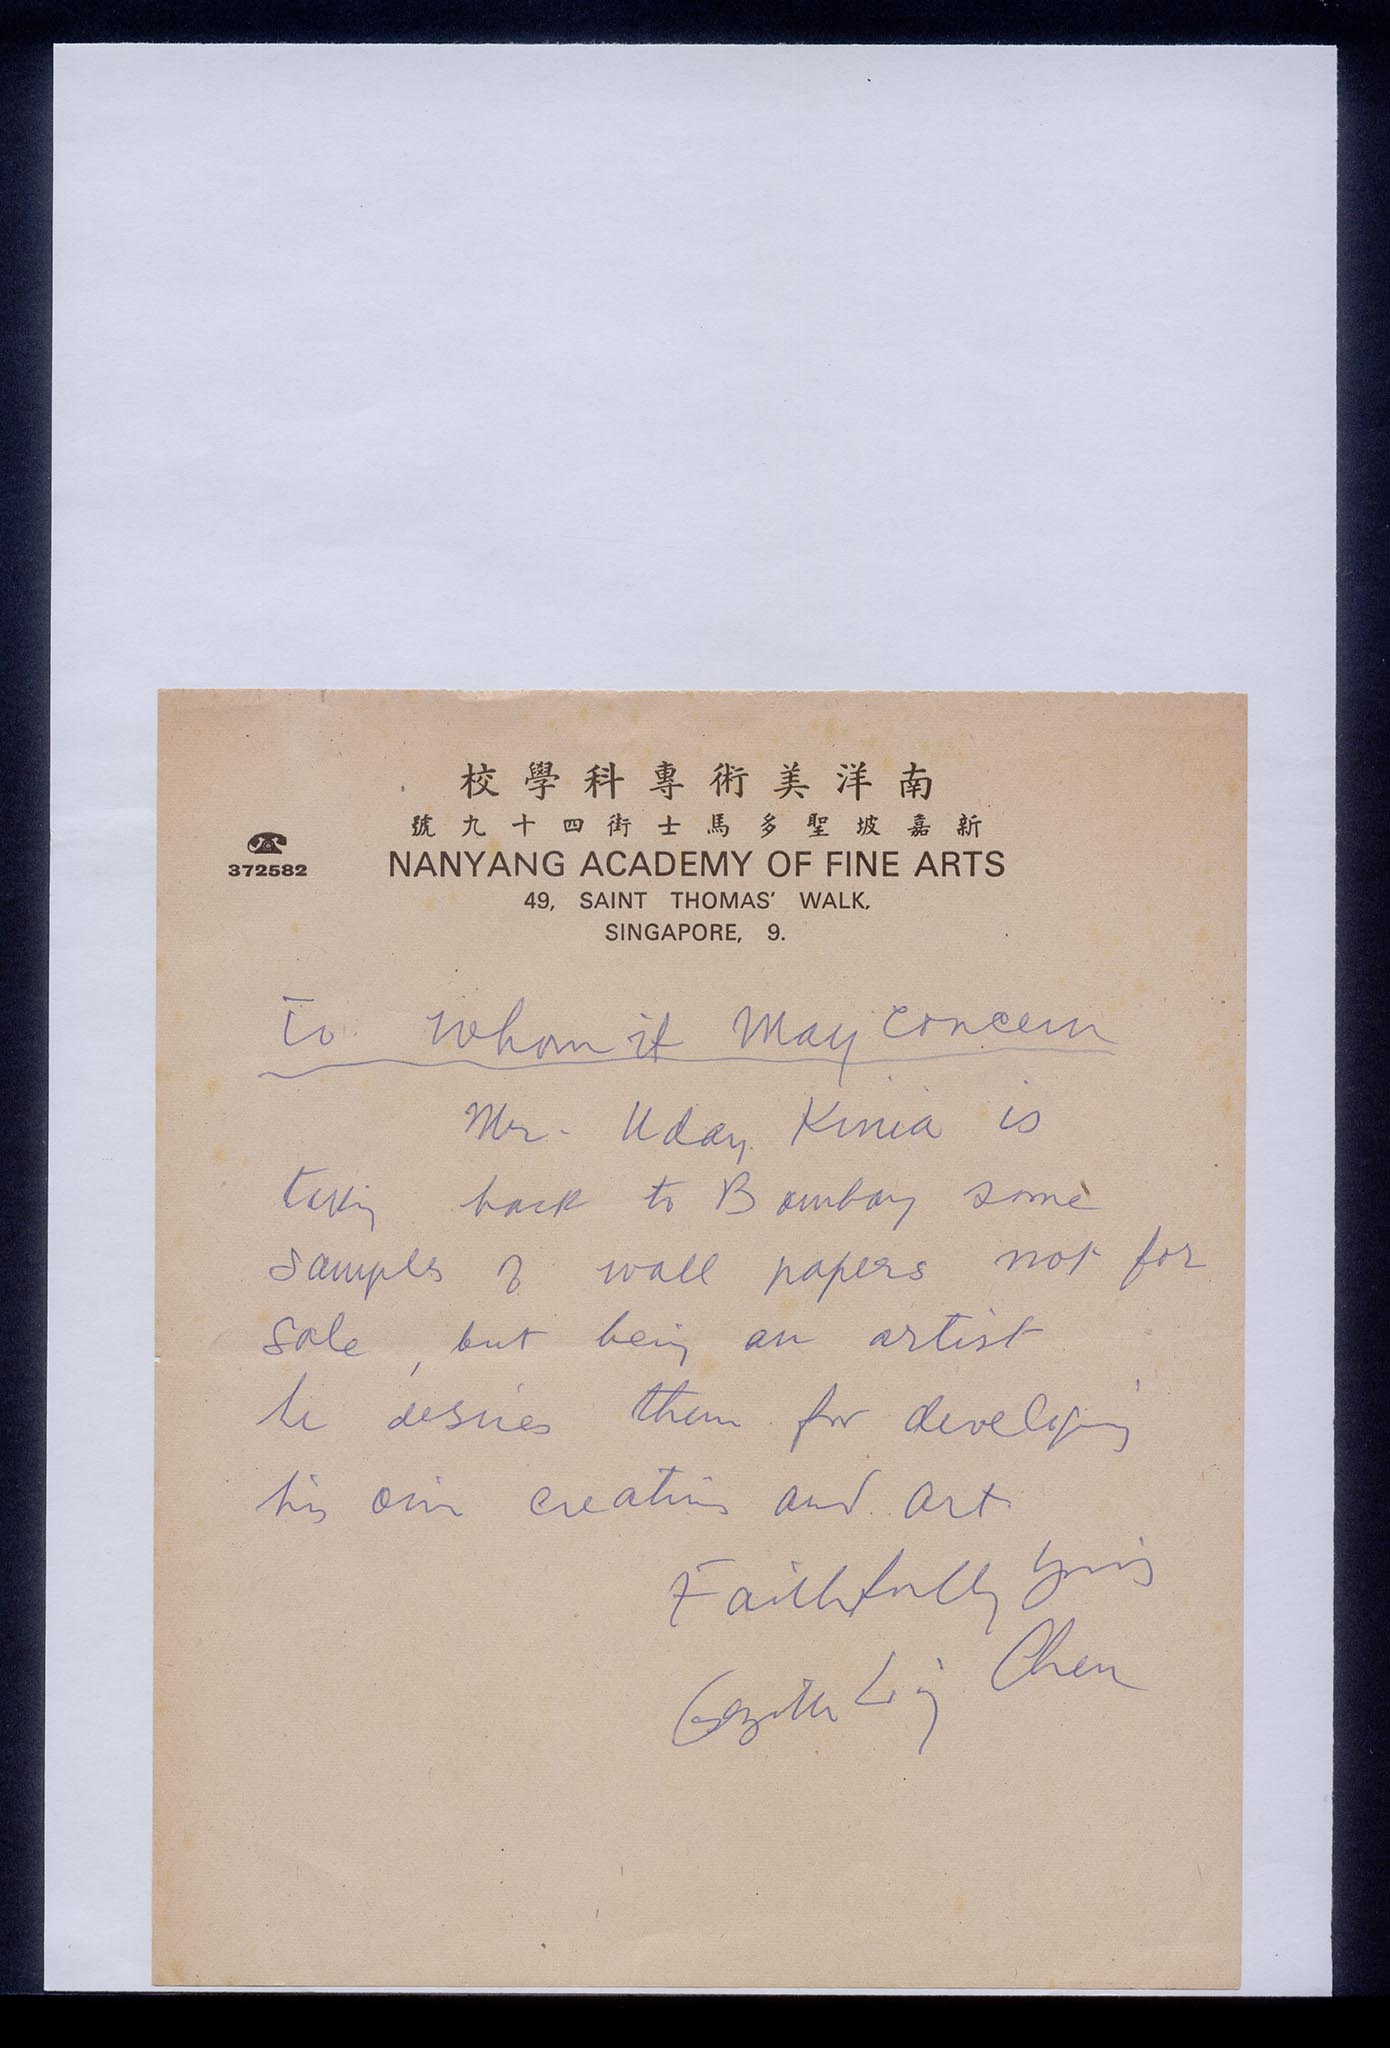 南洋美術專科學校
新嘉坡聖多馬士街四十九號
372582
NANYANG ACADEMY OF FINE ARTS
49, SAINT THOMAS' WALK,
SINGAPORE, 9.
To Whom it May Concern
Mr. Uday Kinia is
taking back to Bombay some
samples of wall papers not for
sale, but being an artist
he desires them for developing
his own creations and art
Faithfully Yours
Georgette Liying Chen